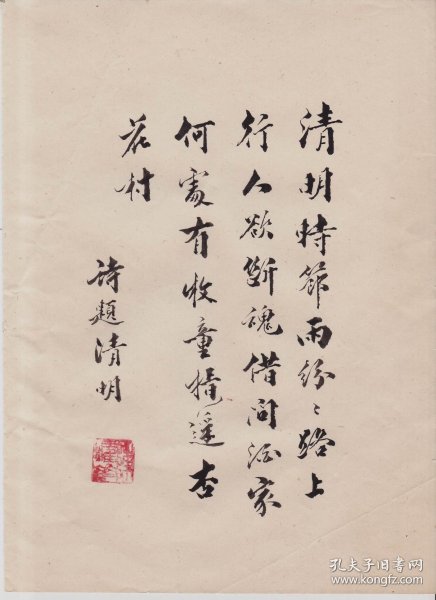 清明時節雨紛〻路上
行人欲斷魂借問酒家
何處有牧童遥杏
花村
詩題清明
孔夫子旧书网
www.kongfz.com